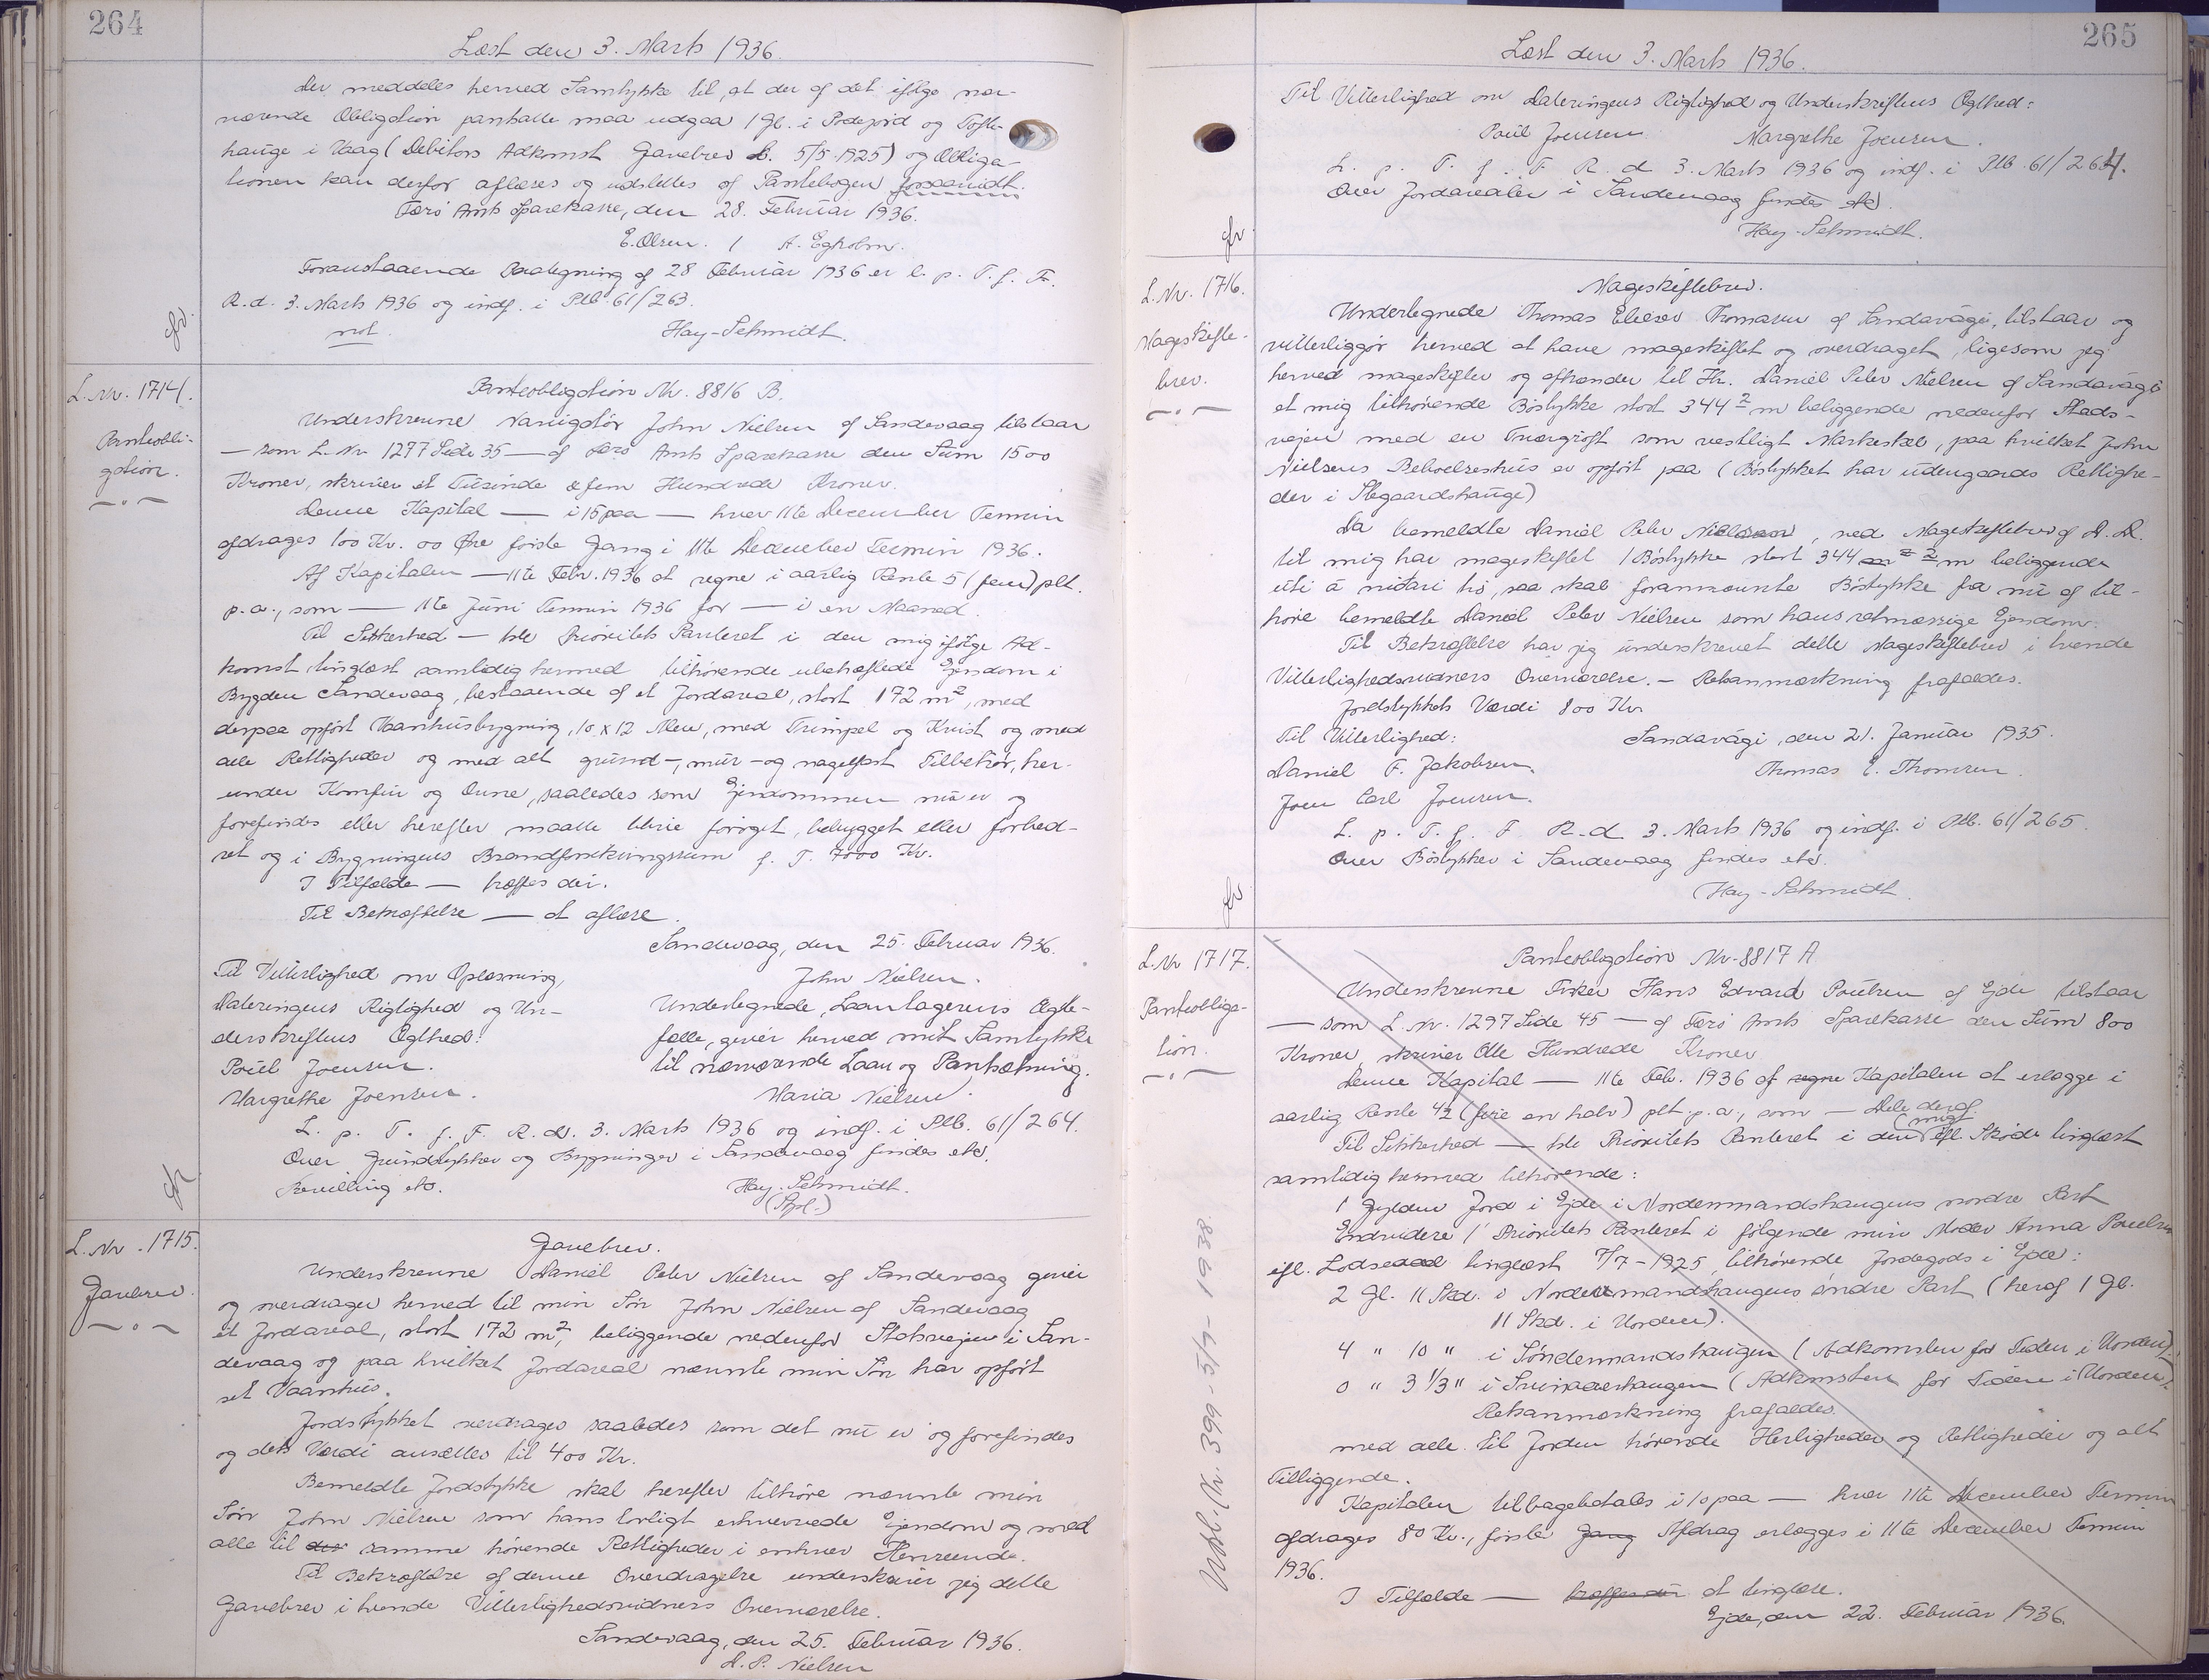 264
Læst den 3. Marts 1936
Der meddeles herved Samtykke til, at der af det ifølge nær-
værende Obligation panthatte maa udgaa 1 Gl. i Pødejord og Tofte-
hauge i Vaag (Debitors Adkomst Gavebrev l. 5/5 1925) og Obliga-
tionen kan derfor aflæses og udslettes af Pantebogen forsaavidt.
Færø Amts Sparekasse, den 28. Februar 1936.
E. Olsen. / A. Egholm.
Foranstaaende Paategning af 28 Februar 1936 er l. p. T. f. F.
R. d. 3. Marts 1936 og indf. i Ptb. 61/263.
not. Hay-Schmidt.
L. Nr. 1714.
Panteobli-
gation.
Panteobligation Nr. 8816 B.
Underskrevne Navigatør John Nielsen af Sandevaag tilstaar
— som L. Nr. 1277 Side 35 — af Færø Amts Sparekasse den Sum 1500
Kroner, skriver et Tusinde & fem Hundrede Kroner.
Denne Kapital — i 15 paa — hver 11te December Termin
afdrages 100 Kr. 00 Øre første Gang i 11te December Termin 1936.
Af Kapitalen — 11te Febr. 1936 at regne i aarlig Rente 5 (fem) pCt.
p. a., som — 11te Juni Termin 1936 for — i en Maaned.
Til Sikkerhed — 1ste Prioritets Panteret i den mig ifølge Ad-
komst tinglæst samtidig hermed tilhørende ubehæftede Ejendom i
Bygden Sandevaag, bestaaende af et Jordareal, stort 172 m², med
derpaa opført Vaanhusbygning, 10 x 12 Alen, med Trimpel og Kvist og med
alle Rettigheder og med alt grund-, mur- og nagelfast Tilbehør, her-
under Komfur og Ovne, saaledes som Ejendommen nu er og
forefindes eller herefter maatte blive forøget, bebygget eller forbed-
ret og i Bygningens Brandforsikringssum f. T. 7000 Kr.
I Tilfælde — træffes der.
Til Bekræftelse — at aflæse.
Sandevaag, den 25. Februar 1936.
Til Vitterlighed om Oplæsning, John Nielsen.
Dateringens Rigtighed og Un- Undertegnede, Laantagerens Ægte-
derskriftens Ægthed: fælle, giver herved mit Samtykke
Poul Joensen. til nærværende Laan og Pantsætning.
Margrethe Joensen. Maria Nielsen.
L. p. T. f. F. R. d. 3. Marts 1936 og indf. i Ptb. 61/264.
Over Grundstykker og Bygninger i Sandevaag findes etc.
Bevilling etc. Hay-Schmidt.
L. Nr. 1715.
Gavebrev.
Gavebrev.
Underskrevne Daniel Peter Nielsen af Sandevaag giver
og overdrager herved til min Søn John Nielsen af Sandevaag
et Jordareal, stort 172 m², beliggende nedenfor Statsvejen i San-
devaag og paa hvilket Jordareal nævnte min Søn har opført
et Vaanhus.
Jordstykket overdrages saaledes som det nu er og forefindes
og dets Værdi ansættes til 400 Kr.
Bemeldte Jordstykke skal herefter tilhøre nævnte min
Søn John Nielsen som hans lovligt erhvervede Ejendom og med
alle til der samme hørende Rettigheder i enhver Henseende.
Til Bekræftelse af denne Overdragelse underskriver jeg dette
Gavebrev i tvende Vitterlighedsvidners Overværelse.
Sandevaag, den 25. Februar 1936.
D. P. Nielsen
265
Læst den 3. Marts 1936.
Til Vitterlighed om Dateringens Rigtighed og Underskriftens Ægthed:
Poul Joensen. Margrethe Joensen.
L. p. T. f. F. R. d. 3. Marts 1936 og indf. i Ptb. 61/264.
Over Jordarealer i Sandevaag findes etc.
Hay-Schmidt.
L. Nr. 1716.
Mageskifte-
brev.
Mageskiftebrev.
Undertegnede Thomas Elieser Thomsen af Sandavági, tilstaar og
vitterliggør herved at have mageskiftet og overdraget, ligesom jeg
herved mageskifter og afhænder til Hr. Daniel Peter Nielsen af Sandavági
et mig tilhørende Bøstykke stort 344 ² m beliggende nedenfor Stads-
vejen med en Tværgrøft som vestligt Markeskel, paa hvilket John
Nielsens Beboelseshus er opført paa (Bøstykket har udengaards Rettighe-
der i Stegaardshauge)
Da bemeldte Daniel Peter Nielsen, ved Mageskiftebrev af D. D.
til mig har mageskiftet 1 Bøstykke stort 344 m ² ² m beliggende
uti á niðari tis, saa skal forannævnte Bøstykke fra nu af til-
høre bemeldte Daniel Peter Nielsen som hans retmæssige Ejendom.
Til Bekræftelse har jeg underskrevet dette Mageskiftebrev i tvende
Vitterlighedsvidners Overværelse. — Retsanmærkning frafaldes.
Jordstykkets Værdi 800 Kr.
Til Vitterlighed: Sandavági, den 21. Januar 1935.
Daniel F. Jakobsen. Thomas E. Thomsen.
Joen Carl Joensen.
L. p. T. f. F. R. d. 3. Marts 1936 og indf. i Ptb. 61/265.
Over Bøstykker i Sandevaag findes etc.
Hay-Schmidt.
L. Nr 1717.
Panteobliga-
tion.
Panteobligation Nr. 8817 A
Underskrevne Fisker Hans Edvard Poulsen af Ejde tilstaar
— som L. Nr. 1297 Side 45 — af Færø Amts Sparekasse den Sum 800
Kroner, skriver Otte Hundrede Kroner
Denne Kapital — 11te Feb. 1936 af regne Kapitalen at erlægge i
aarlig Rente 4½ (fire en halv) pCt. p. a., som — Dele deraf.
Til Sikkerhed — 1ste Prioritets Panteret i den (mig) ifl. Skøde tinglæst
samtidig hermed tilhørende:
1 Gylden Jord i Ejde i Nordenmandshaugens nordre Part
Endvidere 1 Prioritets Panteret i følgende min Moder Anna Poulsen
ifl. Lodseddel tinglæst 7/7-1925 tilhørende Jordegods i Ejde:
2 Gl. 11 Skd. i Nordenmandshaugens søndre Part (heraf 1 Gl.
11 Skd. i Uorden).
4 " 10 " i Søndenmandshaugen (Adkomsten for Tiden i Uorden)
0 " 3 1/3 " i (Adkomsten for Tiden i Uorden).
Retsanmærkning frafaldes.
med alle til Jorden hørende Herligheder og Rettigheder og alt
Tilliggende.
Kapitalen tilbagebetales i 10 paa — hver 11te December Termin
afdrages 80 Kr., første Gang Afdrag erlægges i 11te December Termin
1936.
I Tilfælde — træffes der at tinglæse.
Ejde, den 22. Februar 1936.
Udsl. (Nr. 399 - 5/7 - 1938.